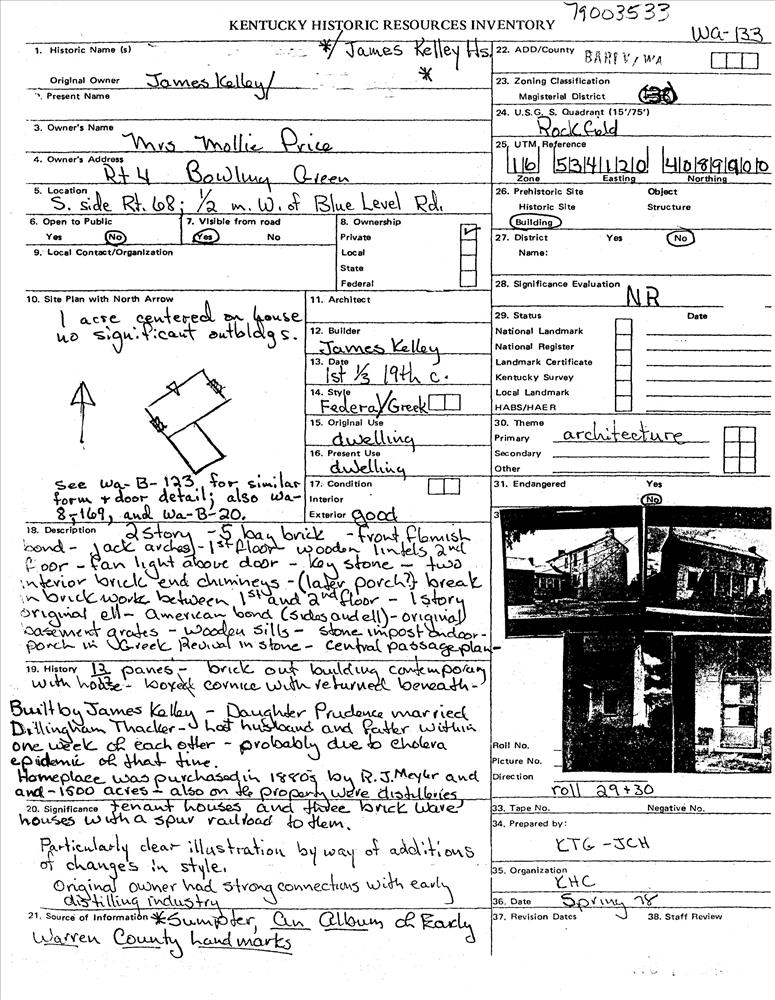 79003533
KENTUCKY HISTORIC RESOURCES INVENTORY
WA-133
1. Historic Name (s)
*/James Kelley Hs.
Original Owner James Kelley
*
2. Present Name
3. Owner's Name
Mrs Mollie Price
4. Owner's Address
Rt 4 Bowling Green
5. Location
S. side Rt. 68; 1/2 m. W. of Blue Level Rd.
6. Open to Public
Yes No
7. Visible from road
Yes No
8. Ownership
Private
Local
State
Federal
9. Local Contact/Organization
10. Site Plan with North Arrow
1 acre centered on house
no significant outbldgs.
see Wa-B-123 for similar
form + door detail; also Wa-
8-169, and Wa-B-20.
11. Architect
12. Builder
James Kelley
13. Date
1st 1/3 19th c.
14. Style
Federal/Greek
15. Original Use
dwelling
16. Present Use
dwelling
17. Condition
Interior
Exterior good
18. Description 2 story - 5 bay brick - front flemish
bond - jack arches - 1st floor wooden lintels 2nd
floor - fan light above door - key stone - two
interior brick end chimneys - (later porch?) break
in brick work between 1st and 2nd floor - 1 story
original ell - American bond (sides and ell) - original
basement grates - wooden sills - stone impost on door -
porch in Greek Revival in stone - central passage plan -
19. History 12 panes - brick out building contemporary
with house - boxed cornice with returned beneath -
Built by James Kelley - Daughter Prudence married
Dillingham Thacker - lost husband and father within
one week of each other - probably due to cholera
epidemic of that time.
Homeplace was purchased in 1880s by R.J. Meyler and
and - 1500 acres - also on the property were distilleries
20. Significance tenant houses and three brick ware
houses with a spur railroad to them.
Particularly clear illustration by way of additions
of changes in style.
Original owner had strong connections with early
distilling industry
21. Source of Information *Sumpter, An Album of Early
Warren County Landmarks
22. ADD/County
BARRV/WA
23. Zoning Classification
Magisterial District
24. U.S.G. S. Quadrant (15'/75')
Rockfield
25. UTM Reference
16 534120 4089900
Zone Easting Northing
26. Prehistoric Site Object
Historic Site Structure
Building
27. District Yes No
Name:
28. Significance Evaluation
NR
29. Status Date
National Landmark
National Register
Landmark Certificate
Kentucky Survey
Local Landmark
HABS/HAER
30. Theme
Primary architecture
Secondary
Other
31. Endangered Yes
No
3
Roll No.
Picture No.
Direction
roll 29+30
33. Tape No. Negative No.
34. Prepared by:
KTG-JCH
35. Organization
KHC
36. Date Spring 78
37. Revision Dates 38. Staff Review